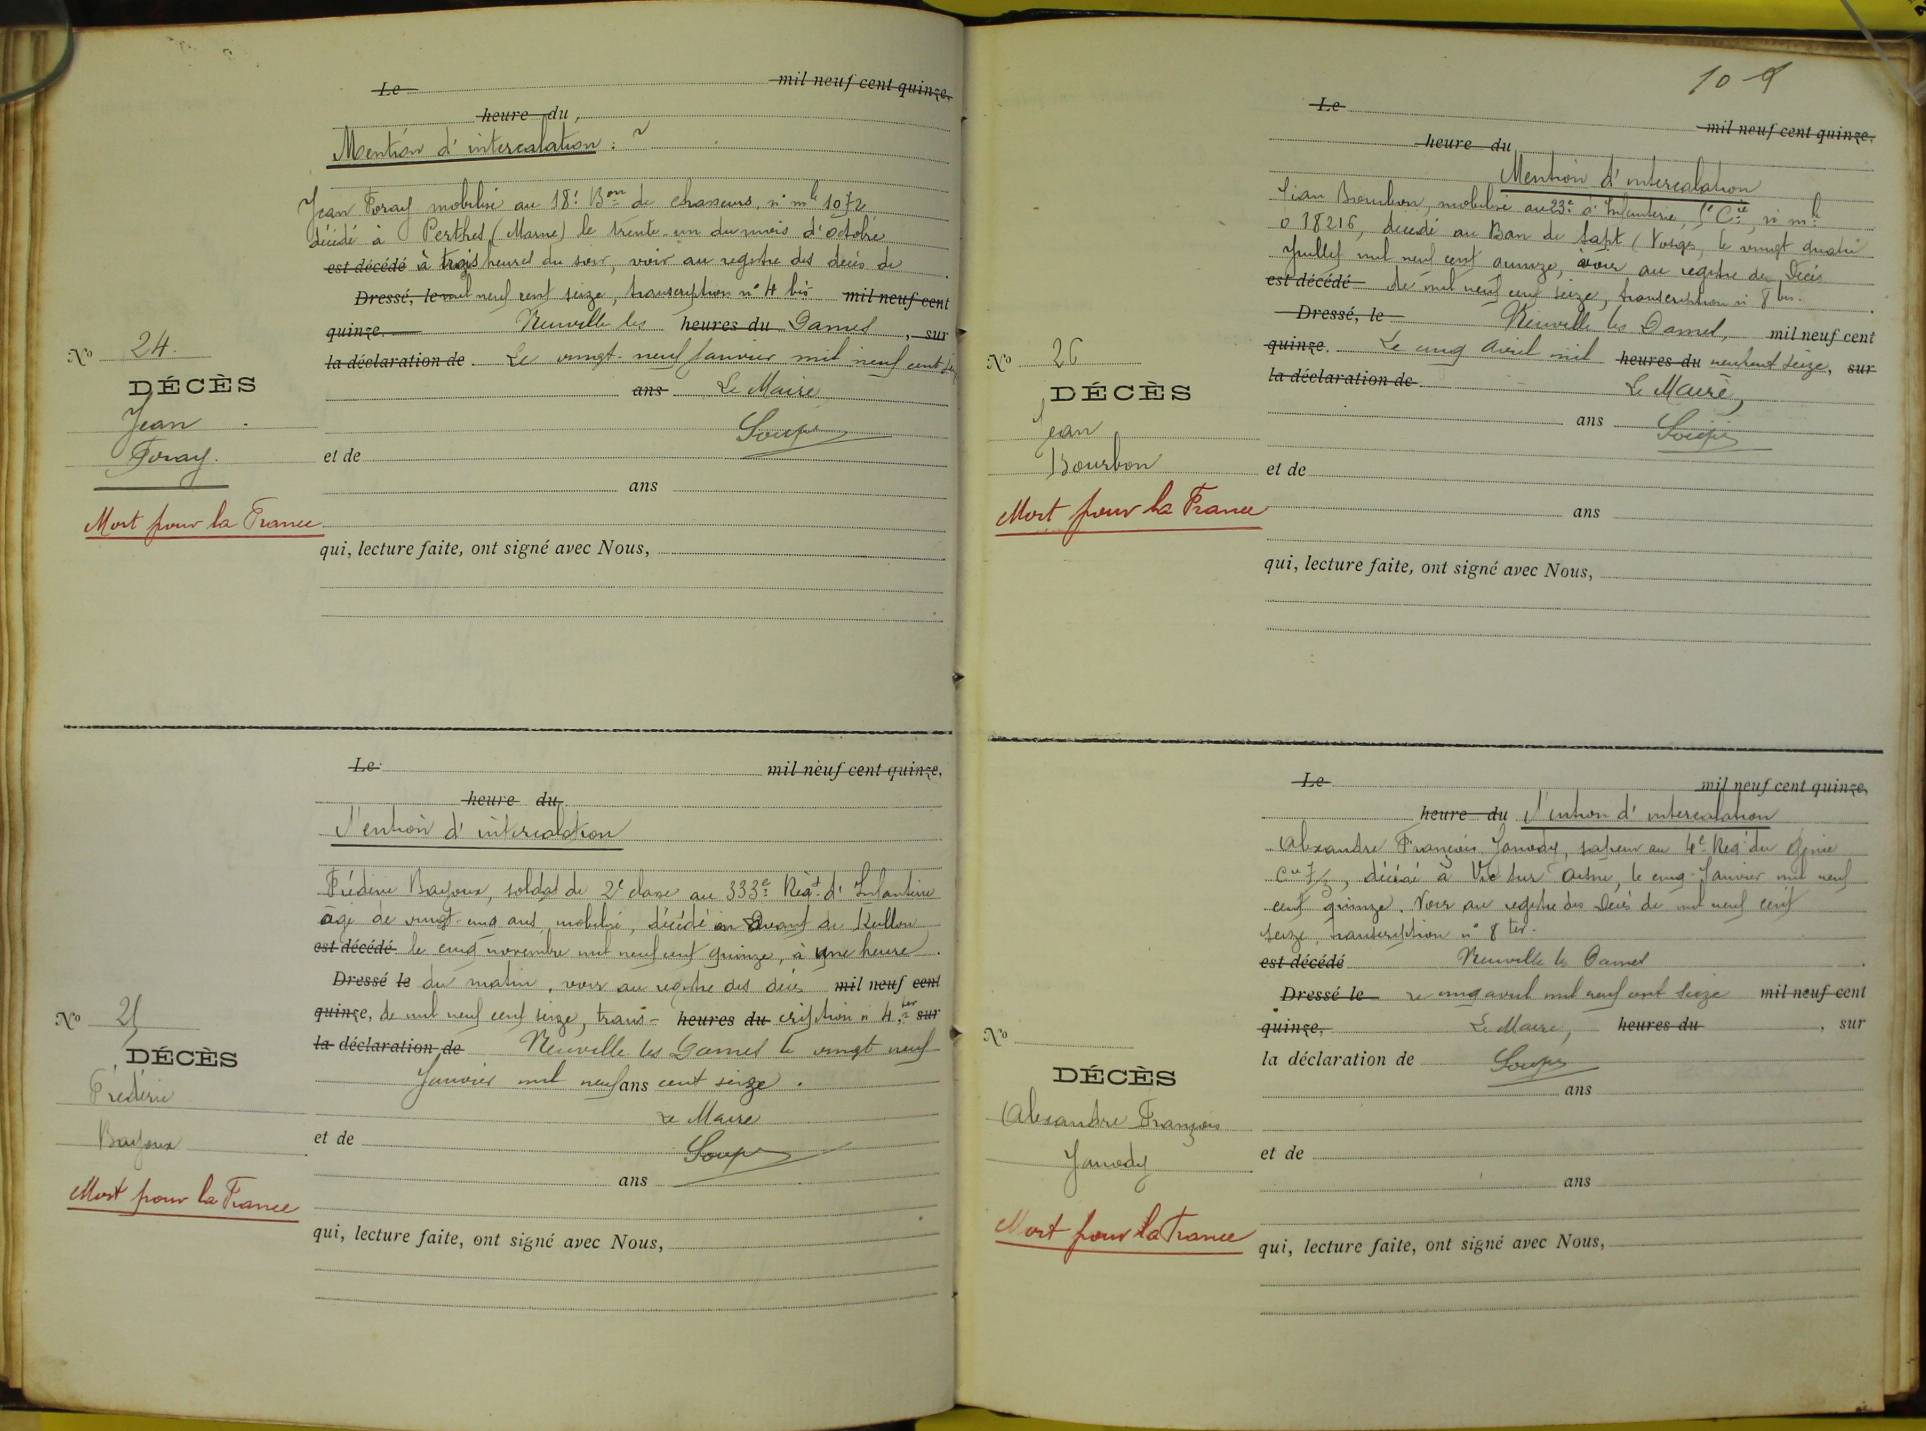 Le mil neuf cent quinze,
heure du
Mention d'intercalation :
Jean Foray mobilisé au 18e Bon de chasseurs, n° mle 1072
décédé à Perthes (Marne) le trente-un du mois d'octobre
est décédé à trois heures du soir, voir au registre des décès de
Dressé, le mil neuf cent seize, transcription n° 4 bis mil neuf cent
quinze. Neuville les heures du Dames, sur
la déclaration de Le vingt-neuf Janvier mil neuf cent seize
ans Le Maire
Soupe
et de
ans
qui, lecture faite, ont signé avec Nous,
No 24.
DÉCÈS
Jean
Foray.
Mort pour la France
Le mil neuf cent quinze,
heure du
Mention d'intercalation
Frédéric Bayoux, soldat de 2e classe au 333e Régt d'Infanterie
âgé de vingt-cinq ans, mobilisé, décédé en avant de
est décédé le cinq novembre mil neuf cent quinze, à une heure.
Dressé le du matin, voir au registre des décès mil neuf cent
quinze, de mil neuf cent seize, trans- heures du cription n° 4 ter sur
la déclaration de Neuville les Dames le vingt neuf
Janvier mil neuf ans cent seize.
Le Maire
Soupe
et de
ans
qui, lecture faite, ont signé avec Nous,
No 25
DÉCÈS
Frédéric
Bayoux
Mort pour la France
10
Le mil neuf cent quinze,
heure du
Mention d'intercalation
Jean Bourbon, mobilisé au 23e d'Infanterie, Cie, n° mle
018216, décédé au Ban de Sapt (Vosges, le vingt quatre
Juillet mil neuf cent quinze, voir au registre des Décès
est décédé de mil neuf cent seize, transcription n° 8 bis.
Dressé, le Neuville les Dames, mil neuf cent
quinze. Le cinq Avril mil heures du neuf cent seize, sur
la déclaration de Le Maire,
ans Soupe
et de
ans
qui, lecture faite, ont signé avec Nous,
No 26
DÉCÈS
Jean
Bourbon
Mort pour la France
Le mil neuf cent quinze,
heure du Mention d'intercalation
Alexandre François Janody, sapeur au 4e Reg. du Génie
Cie décédé à Vic sur Aisne, le cinq Janvier mil neuf
cent quinze. Voir au registre des Décès de mil neuf cent
seize, transcription n° 8 ter.
est décédé Neuville les Dames
Dressé le Le cinq avril mil neuf cent seize mil neuf cent
quinze, Le Maire, heures du , sur
la déclaration de Soupe
ans
et de
ans
qui, lecture faite, ont signé avec Nous,
No
DÉCÈS
Alexandre François
Janody
Mort pour la France